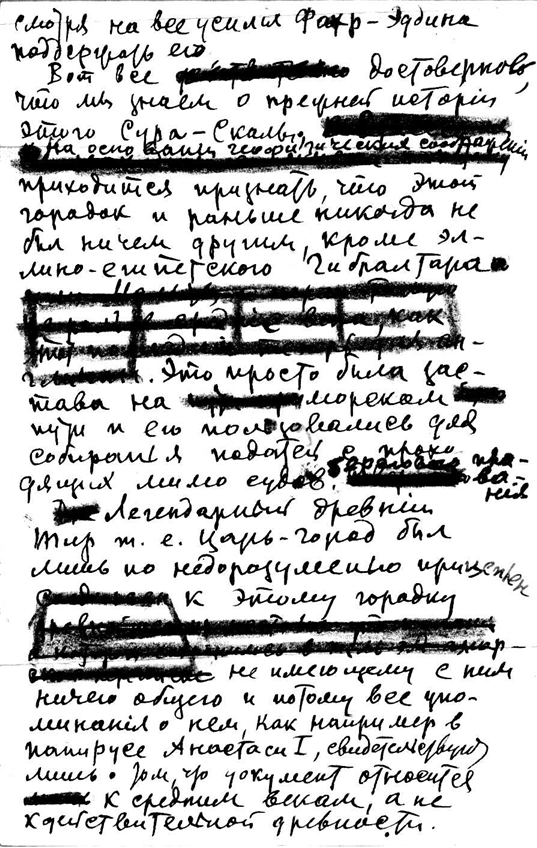 смотря на все усилія Фахр-Эддина
поддержать его
Вот все достоверное,
что мы знаем о прежней исторіи
этого Сура-Скалы.
На основаніи географических соображеній
приходится признать, что этот
городок и раньше никогда не
был ничем другим, кроме эл-
лино-египетского Гибралтара
как
Это просто была зас-
тава на морском
пути и его пользовались для
собиранія податей с прохо
дящих мимо судов.
Легендарный древній
Тир т. е. Царь-город был
лишь по недоразумению прицеплен
к этому городку
не имеющему с ним
ничего общего и потому все упо-
минанія о нем, как например в
папирусе Анастаси I, свидетельствуют
лишь о том, что документ относится
к средним векам, а не
к действительной древности.